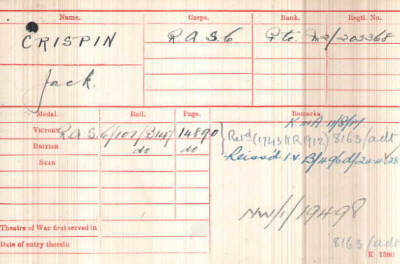 Name. Corps. Rank. Regtl. No.
CRISPIN R A S C Pte. M2/203368
Jack.
Medal. Roll. Page. Remarks.
VICTORY R A S C/101/B147 14890 K in A
BRITISH do do Retd (1743 KR 1912) 8163/adt
STAR Reiss'd I.V.
NW/1/19498
Theatre of War first served in
Date of entry therein 8163/adt
K. 1380